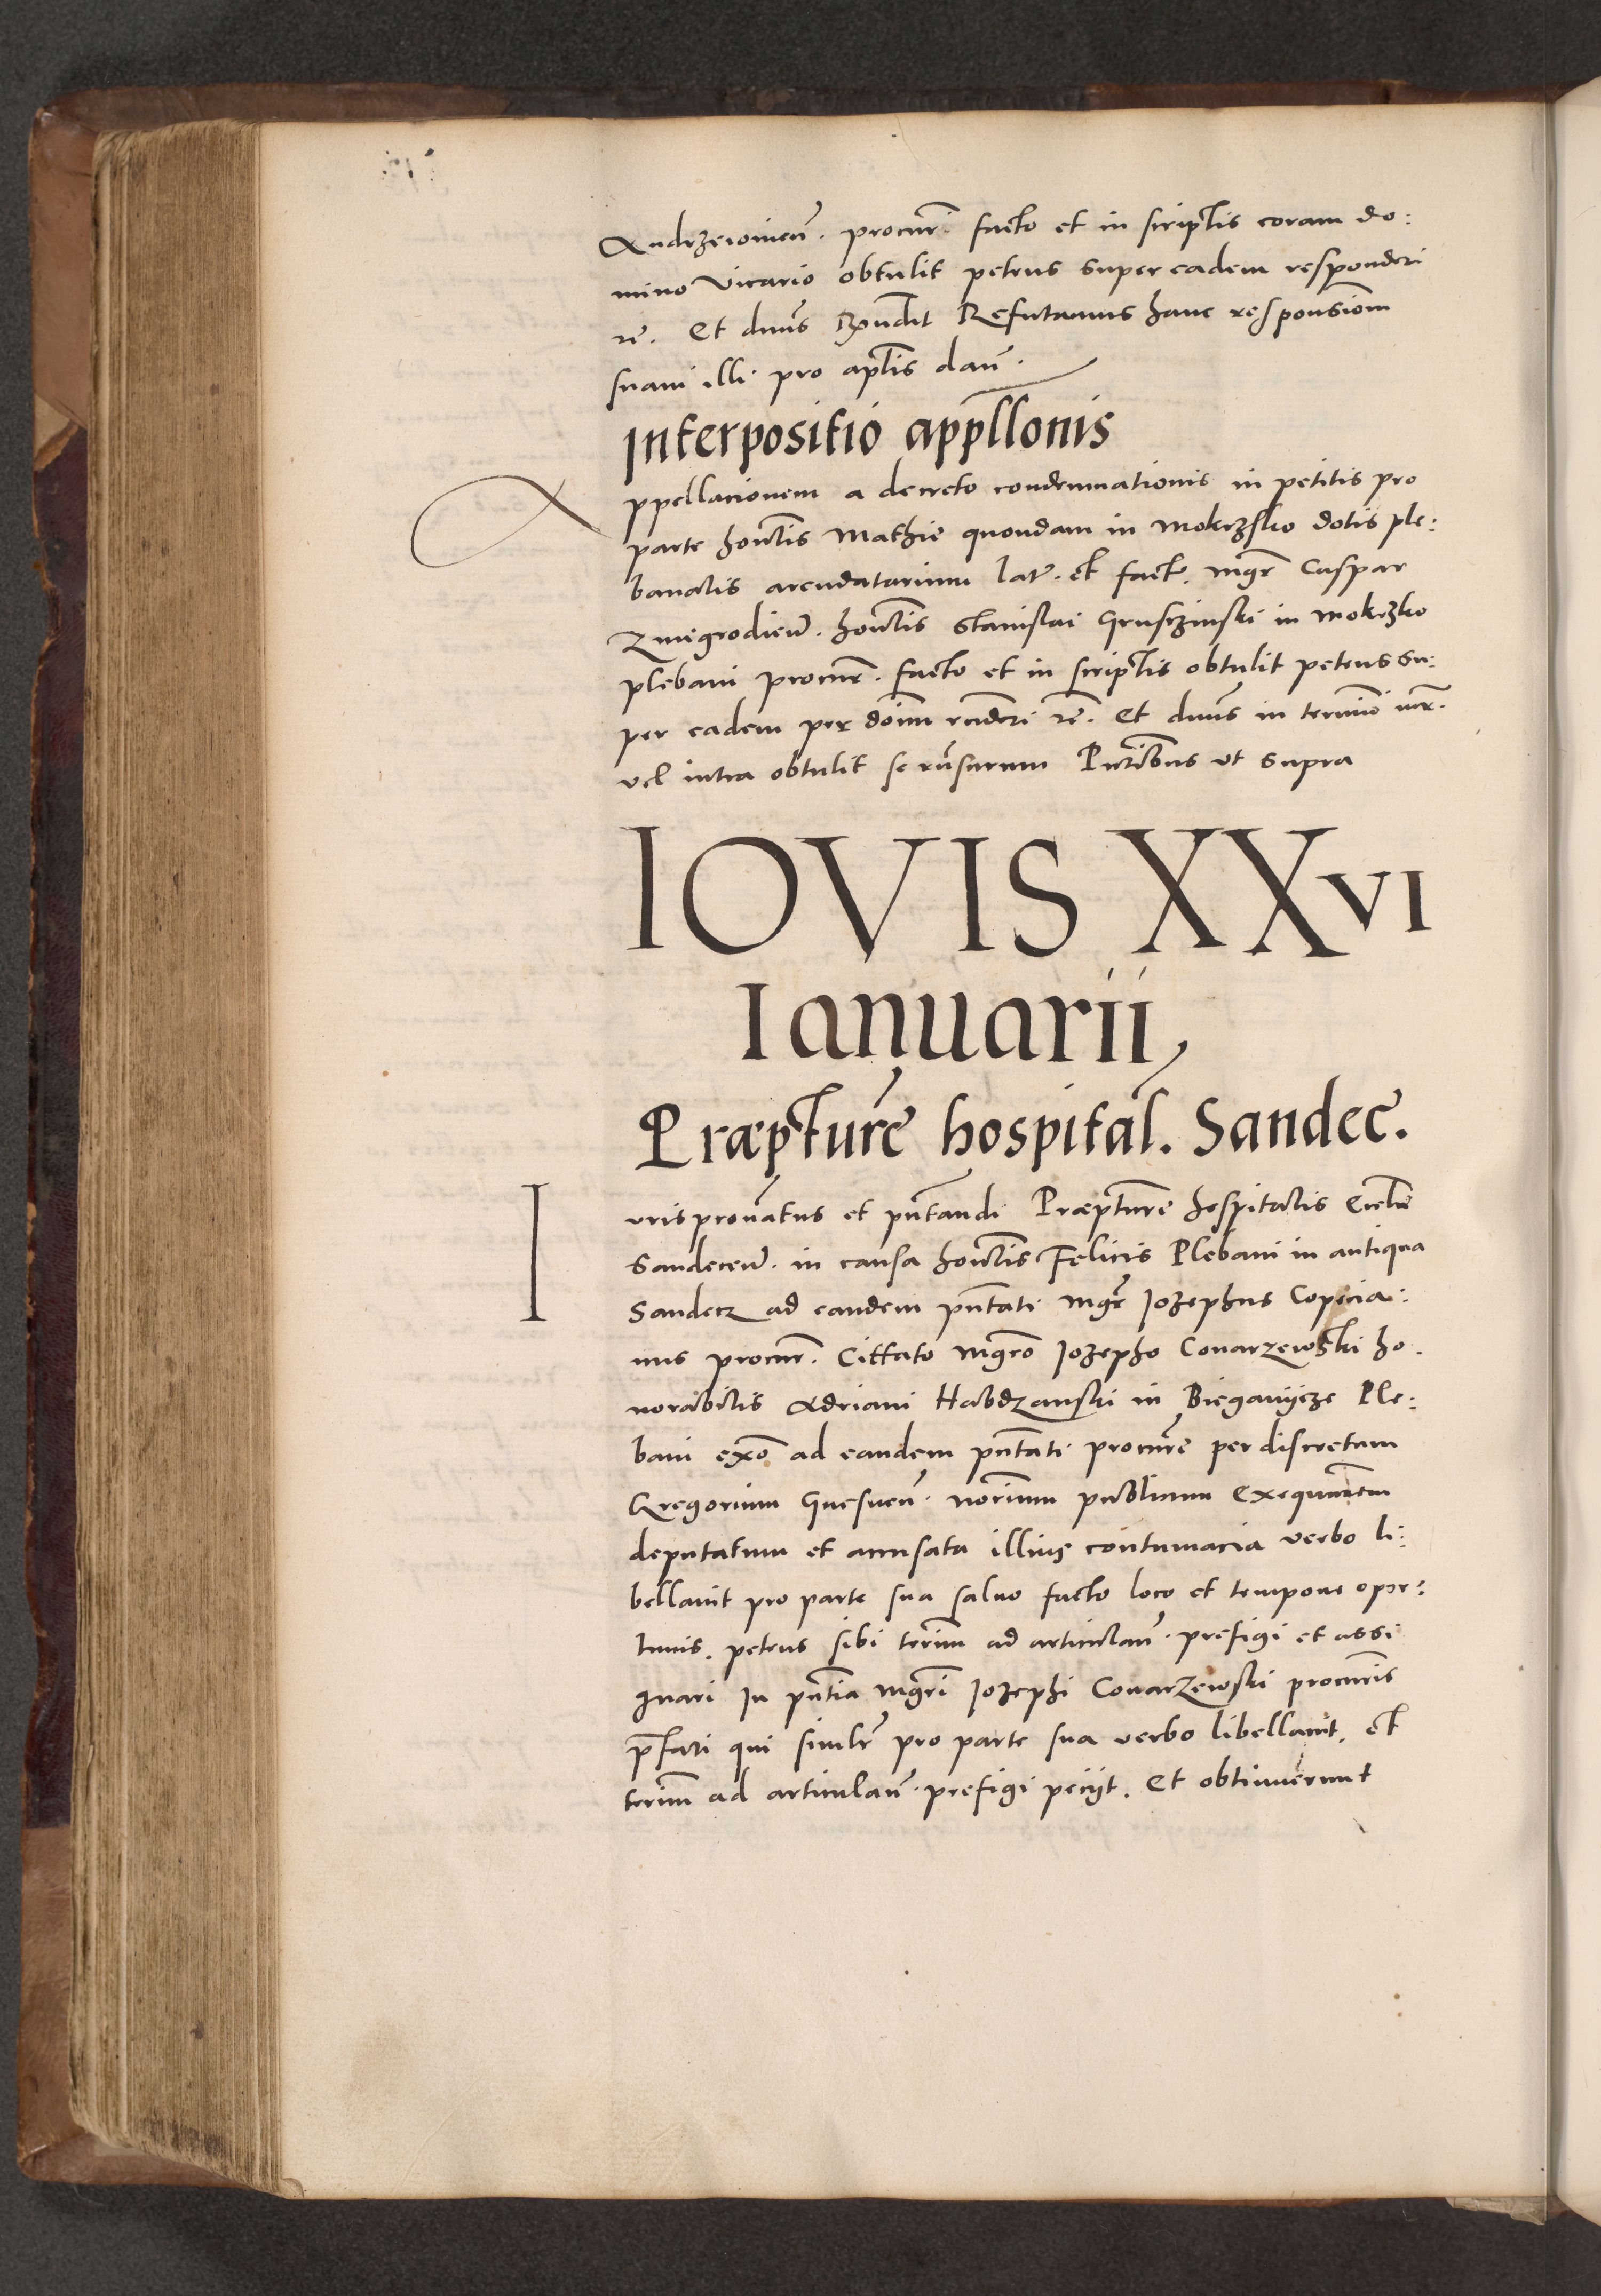 Andrzeiouien̄. procur̄i facto et in scriptis coram do:
mino Vicario obtulit petens super eadem responderi
rē. Et dnūs Rn̄dit Refutamus hanc responsiōm
suam illi pro aplīs dan̄.
Interpositio appl̄lonis
Appellacionem a decreto condemnationis in petitis pro
parte honīlis Mathie quondam in Mokrzsko dotis ple:
banalis arendatarium lat̄. et fact. mḡr Caspar
Zmigrodień. honīlis Stanislai Grusczinski in mokrzko
plebani procur̄. facto et in scriptis obtulit petens su:
per eadem per dōim rn̄deri rē. Et dnūs in termīo iur̄.
vel intra obtulit se rn̄surum Pn̄tibus ut supra
IOVIS XXVI
Ianuarii,
Præptur̄e hospital̄. Sandec̄.
Iuris pronātus et pn̄tandi Præptur̄e hospitalis Ecclīe
Sandeceń. in causa honīlis Felicis Plebani in antiqua
Sandecz ad eandem pn̄tati mḡr Iozephus Copicia:
nus procur̄. Cittato mgr̄o Iozepho Conarzewski ho.
norabilis Adriani Habdzanski in Bieganijcze Ple:
bani exō ad eandem pn̄tati procur̄e per discretum
Gregorium Gnesnen̄. nor̄ium publicum Exequūtem
deputatum et accusata illius contumacia verbo li:
bellauit pro parte sua saluo facto loco et tempore opor:
tunis. petens sibi terīm ad articulan̄. prefigi et assi
gnari In pn̄tia mgr̄i Iozephi Conarzewski procur̄is
pr̄fati qui simlr̄ pro parte sua verbo libellauit. et
terīm ad articulan̄. prefigi pecijt. Et obtinuerunt